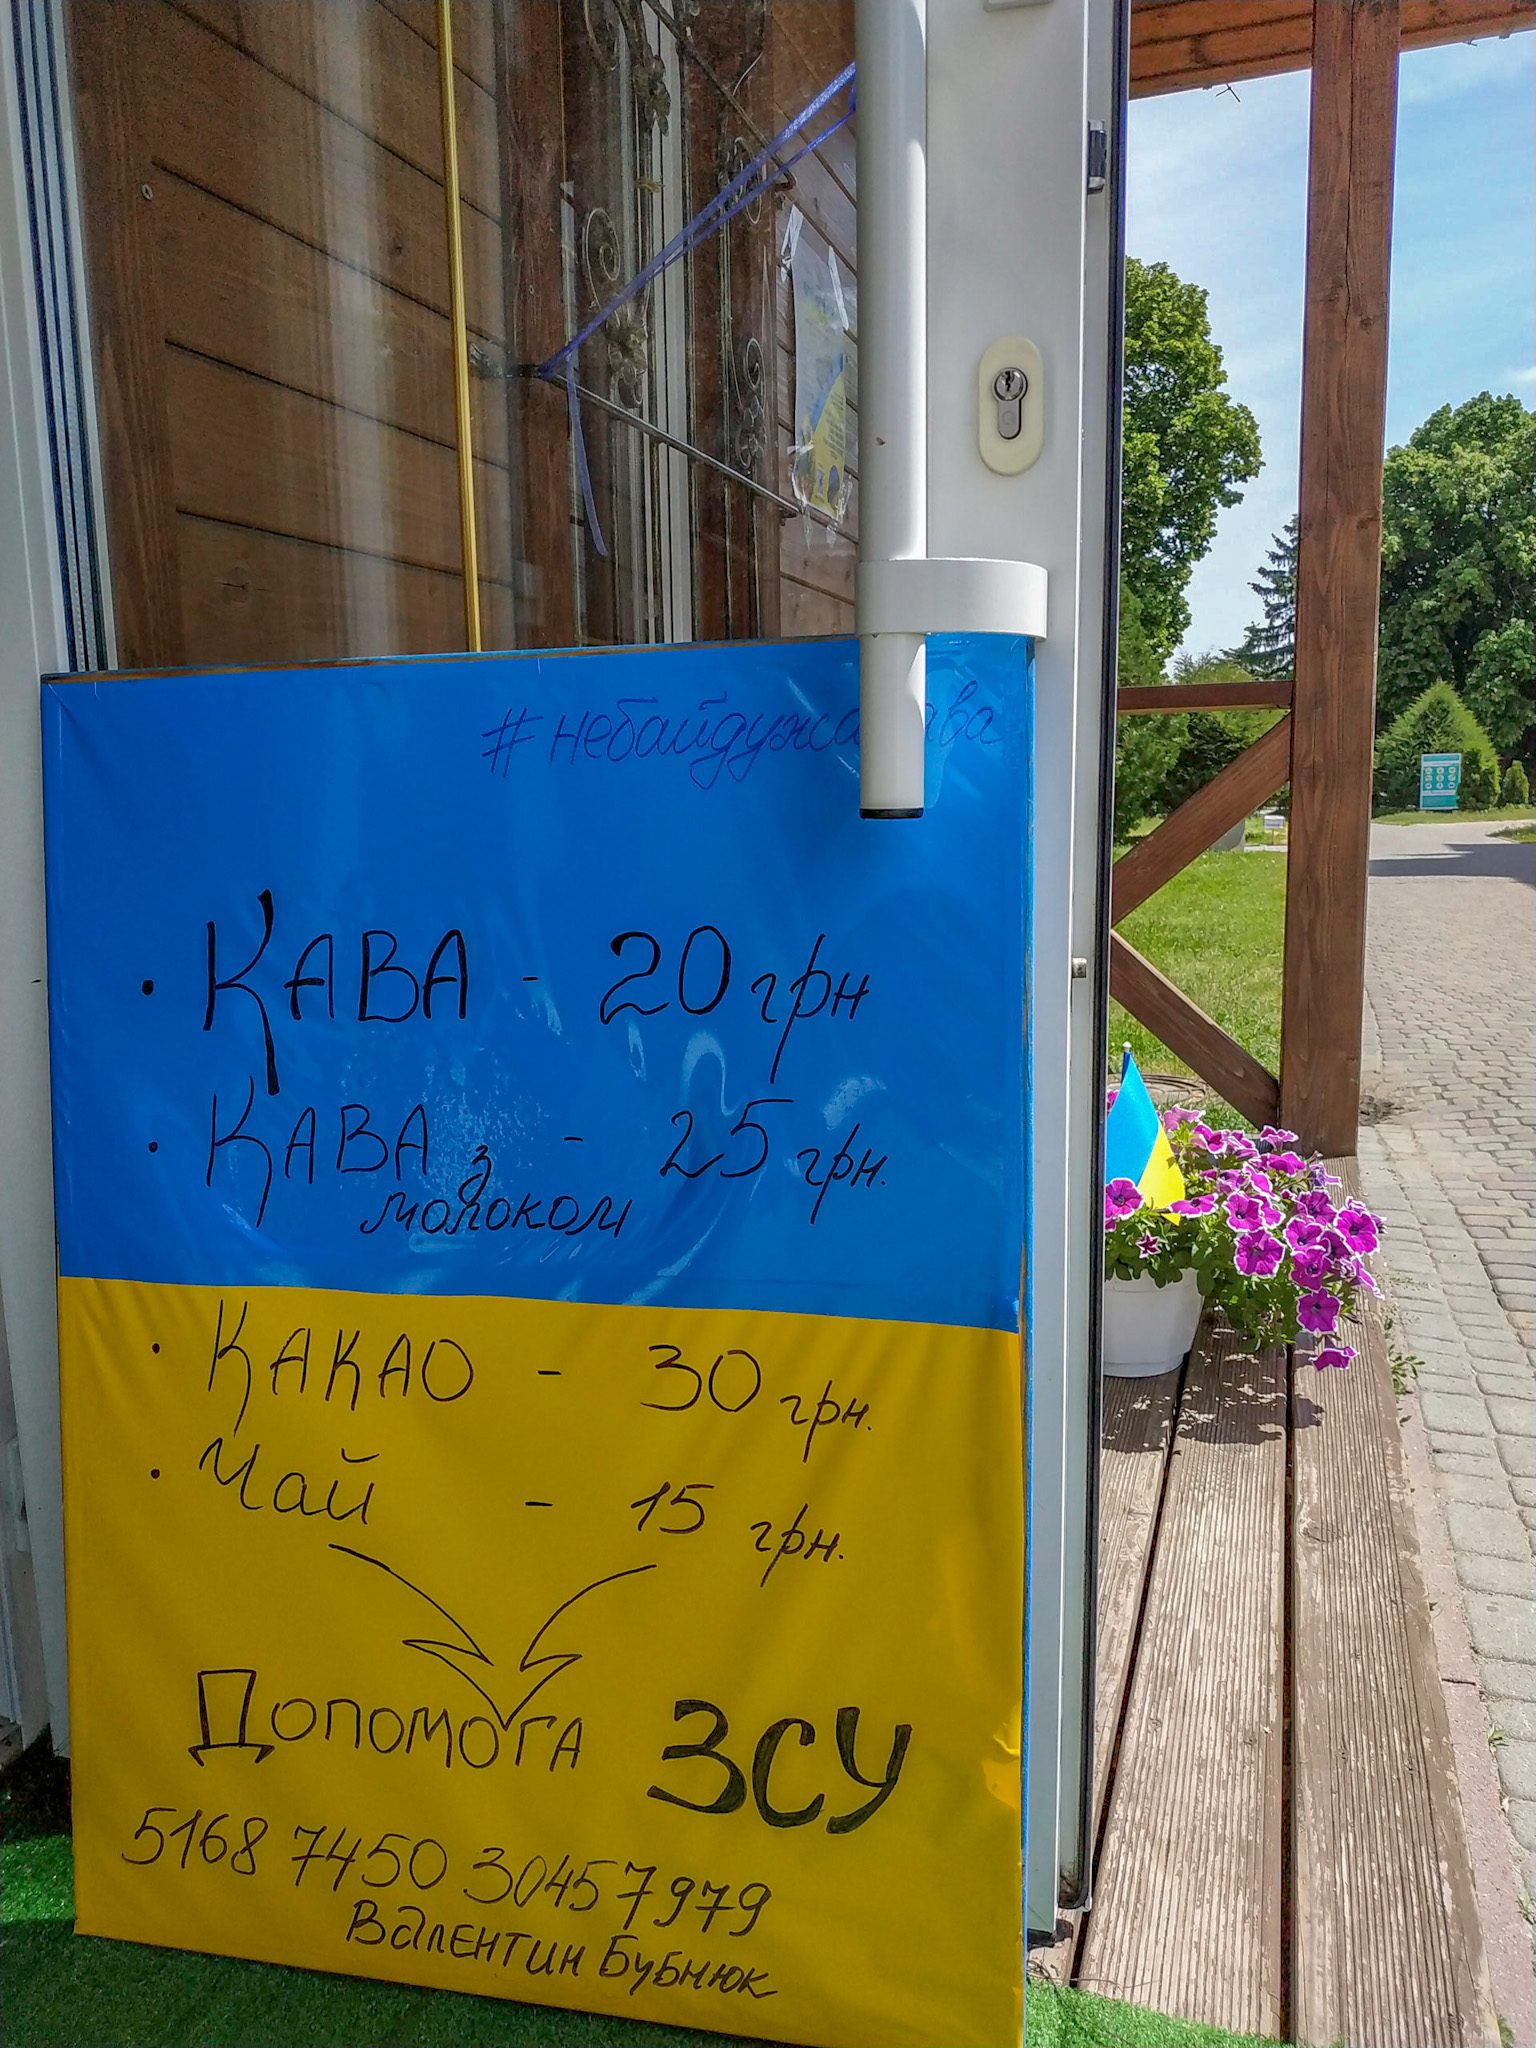 #небайдужа
• КАВА - 20 грн
• КАВА з - 25 грн.
молоком
• КАКАО - 30 грн.
• Чай - 15 грн.
Допомога ЗСУ
5168 7450 30457979
Валентин Бубнюк